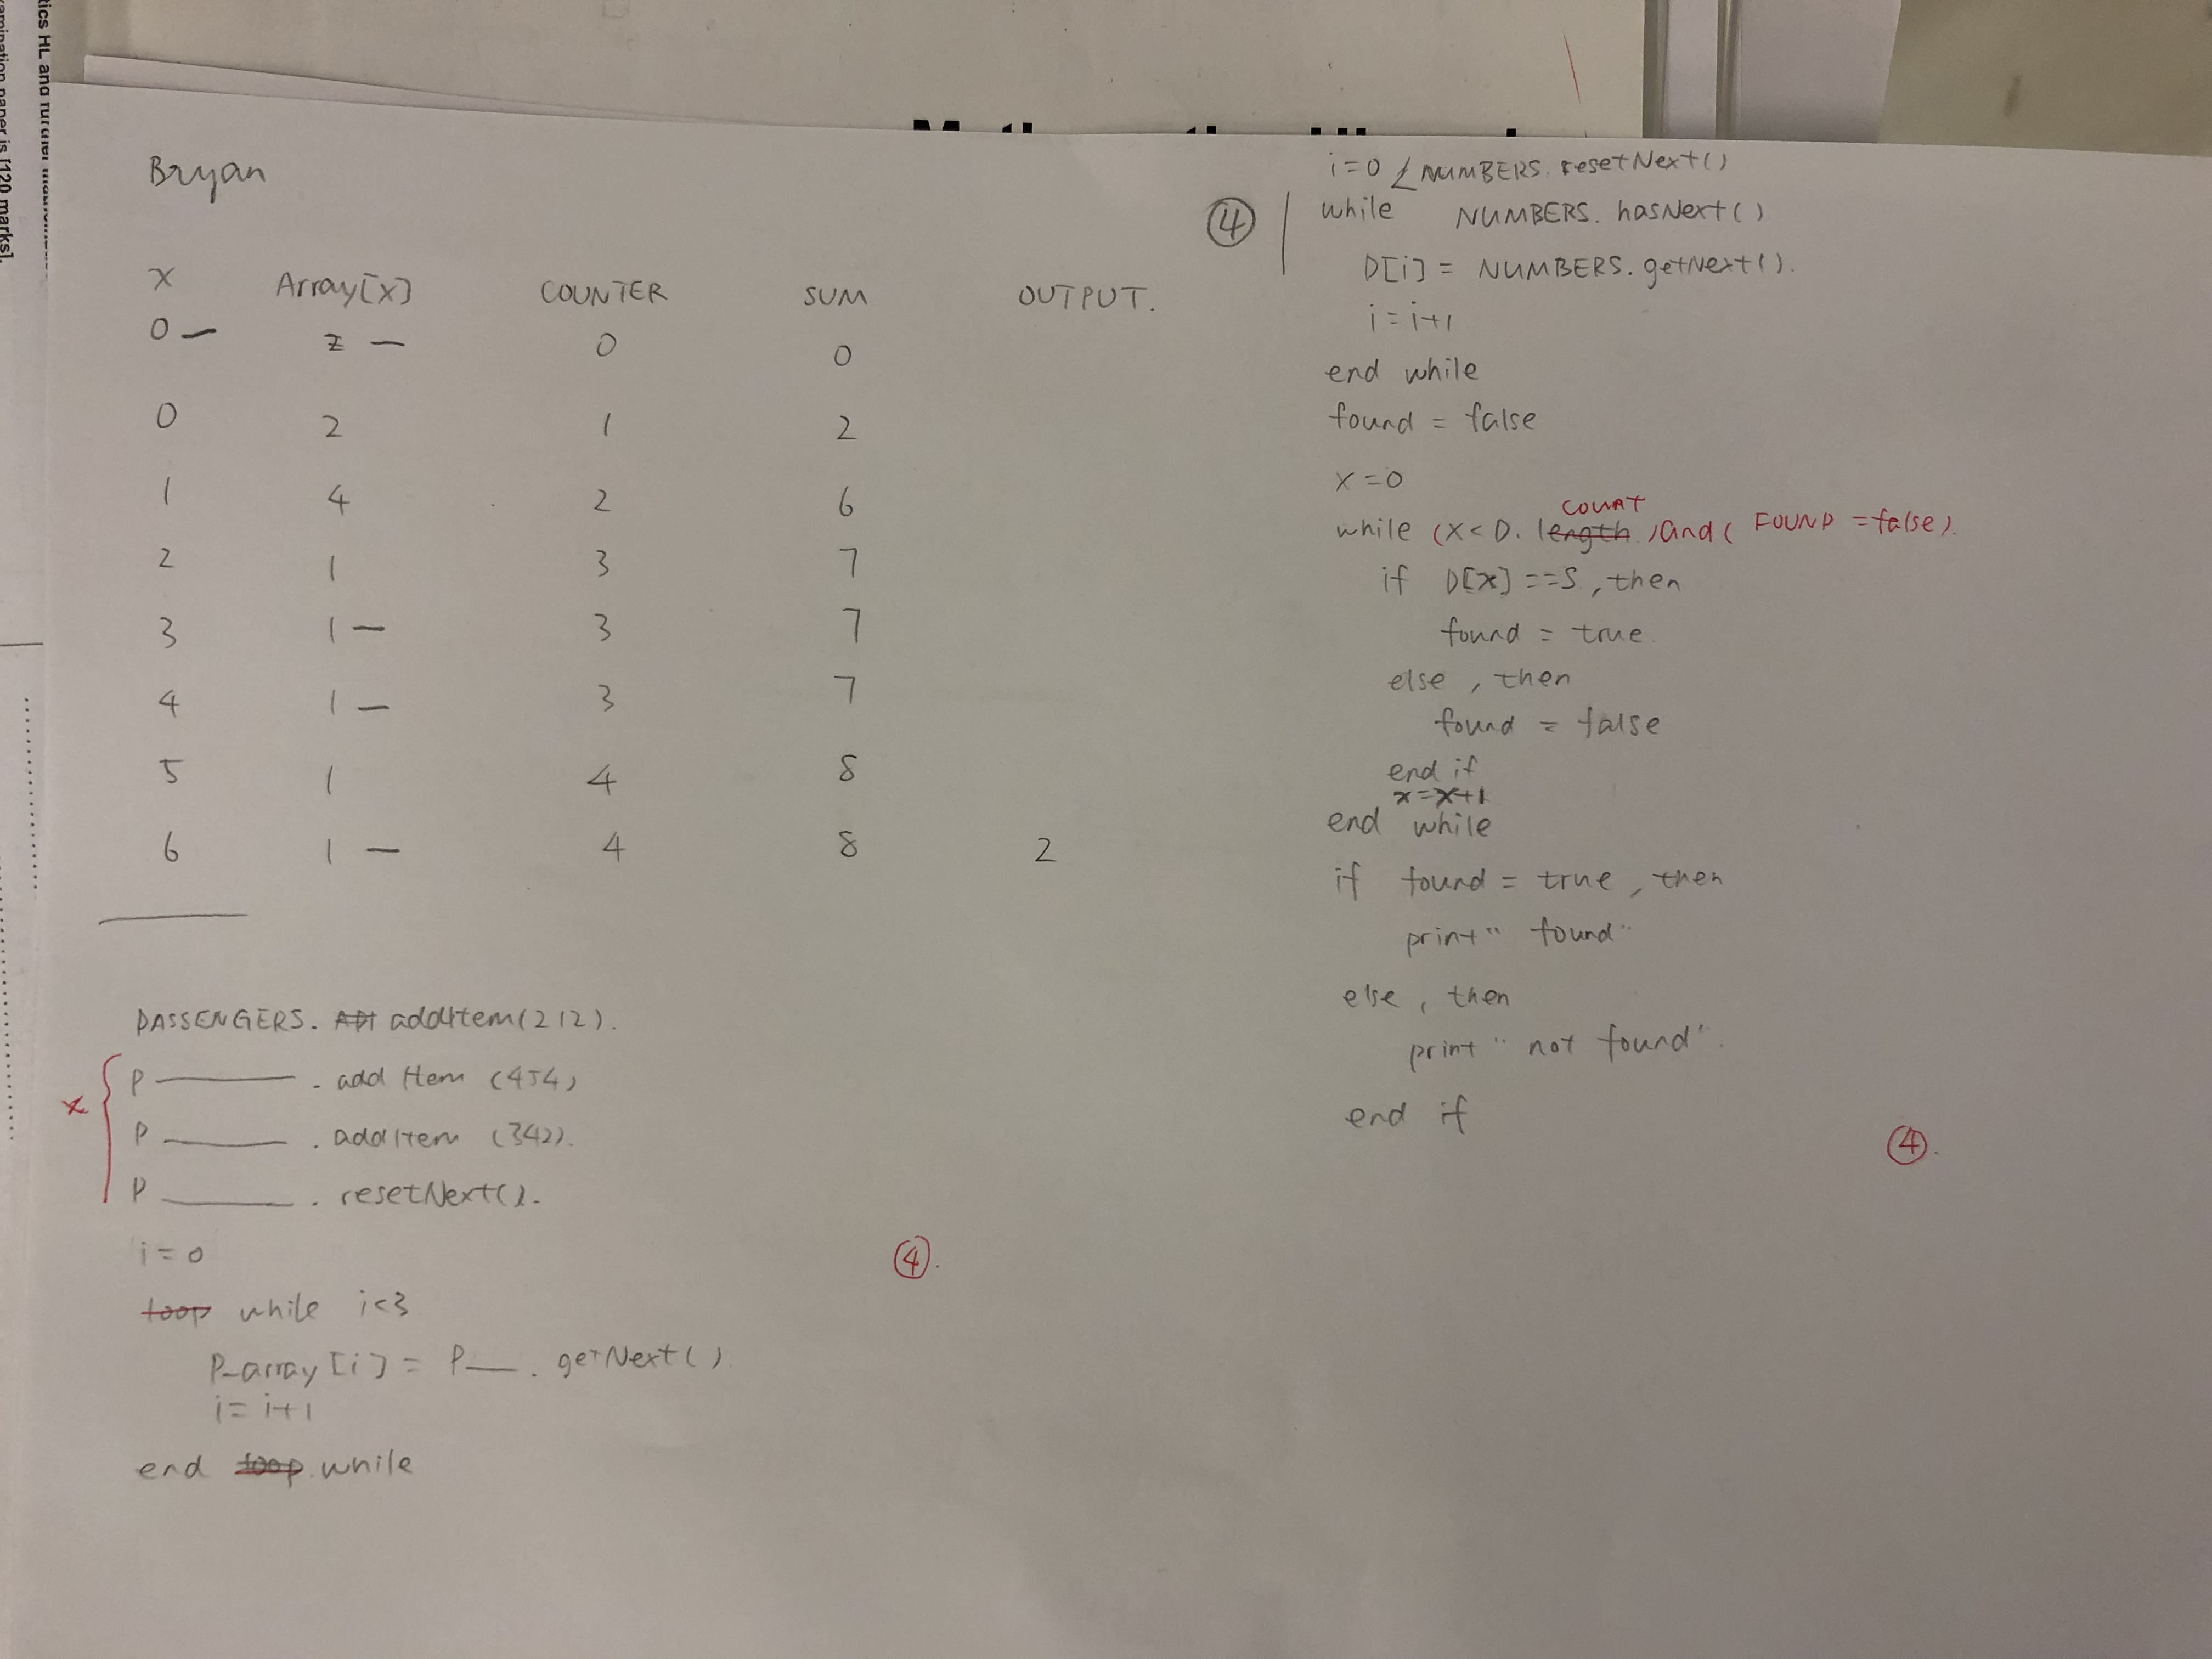 tics HL and further
amination paper is [120 marks].
Bryan
X Array[X] COUNTER SUM OUTPUT.
0 — 2 — 0 0
0 2 1 2
1 4 2 6
2 1 3 7
3 1 — 3 7
4 1 — 3 7
5 1 4 8
6 1 — 4 8 2
PASSENGERS. addItem(212).
x
P ——— . addItem (454)
P ——— . addItem (342).
P ——— . resetNext().
i = 0
loop while i<3
P_array [i] = P — . getNext()
i = i+1
end loop while
④.
④
i=0 NUMBERS. resetNext()
while NUMBERS. hasNext()
D[i] = NUMBERS. getNext().
i = i+1
end while
found = false
x = 0
count
while (x < D. length )and( FOUND = false).
if D[x] == S , then
found = true.
else , then
found = false
end if
x=x+1
end while
if found = true , then
print " found "
else , then
print " not found ".
end if
④.